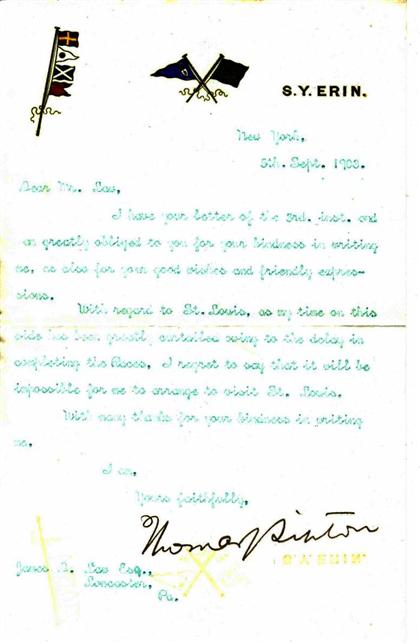 S.Y. ERIN.
New York,
5th. Sept. 1903.
Dear Mr. Law,
I have your letter of the 3rd. inst. and
am greatly obliged to you for your kindness in writing
me, as also for your good wishes and friendly expres-
sions.
With regard to St. Louis, as my time on this
side has been greatly curtailed owing to the delay in
completing the Races, I regret to say that it will be
impossible for me to arrange to visit St. Louis.
With many thanks for your kindness in writing
me,
I am,
Yours faithfully,
Thomas Lipton
James Law Esq.,
Lancaster,
Pa.